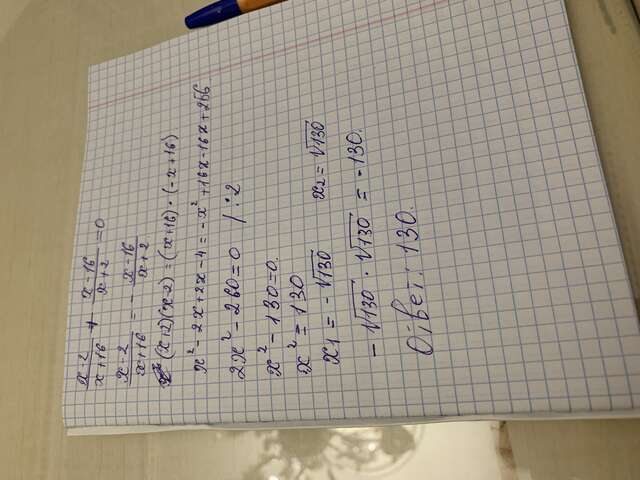 x-2/x+16 + x-16/x+2 = 0
x-2/x+16 = - x-16/x+2
(x+2)(x-2) = (x+16)·(-x+16)
x² - 2x + 2x - 4 = -x² + 16x - 16x + 256
2x² - 260 = 0 /:2
x² - 130 = 0.
x² = 130
x₁ = -√130 x₂ = √130
-√130 · √130 = -130.
Ответ: 130.